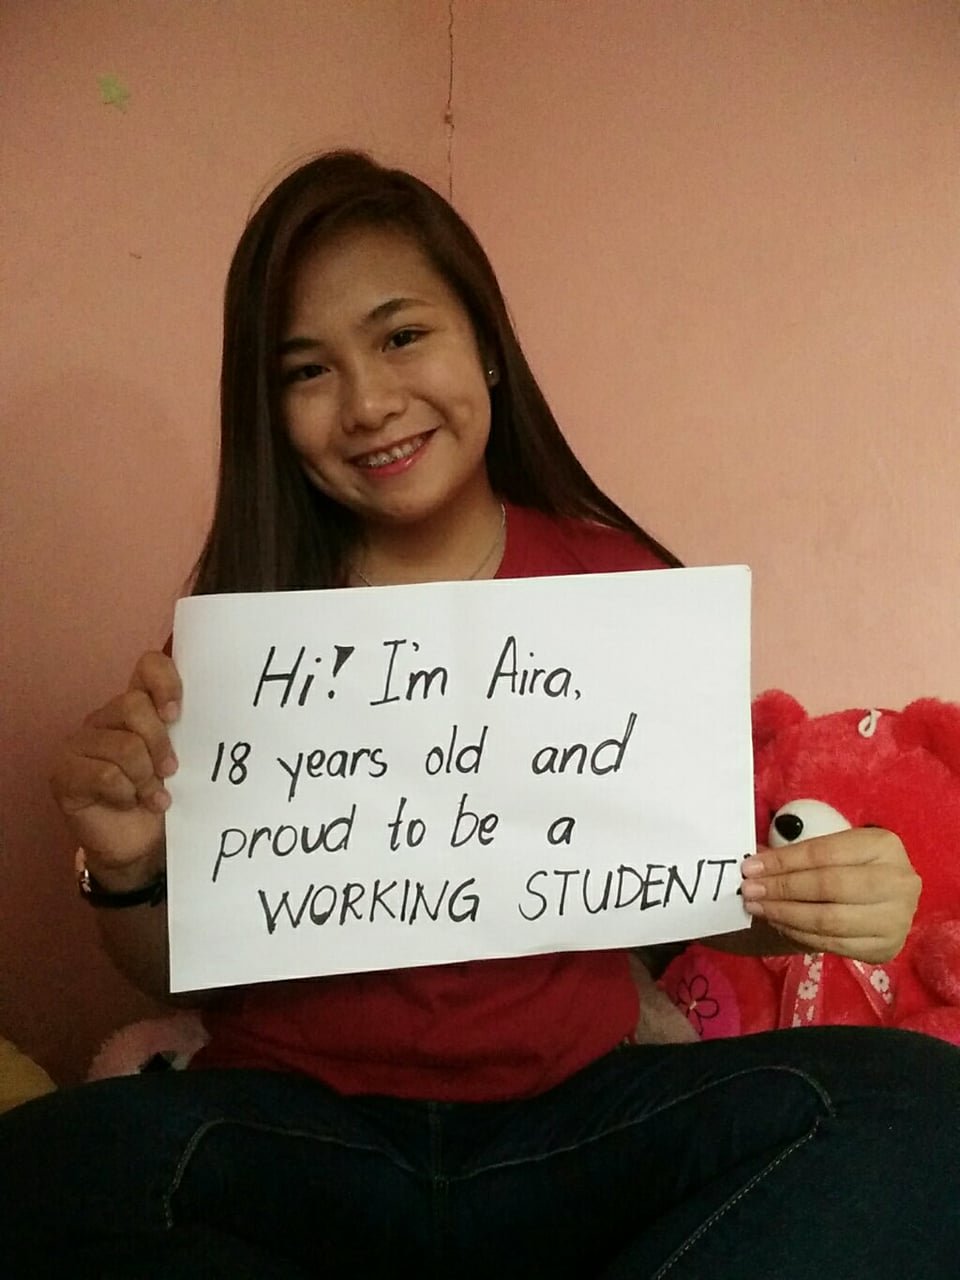 Hi! I'm Aira,
18 years old and
proud to be a
WORKING STUDENT!